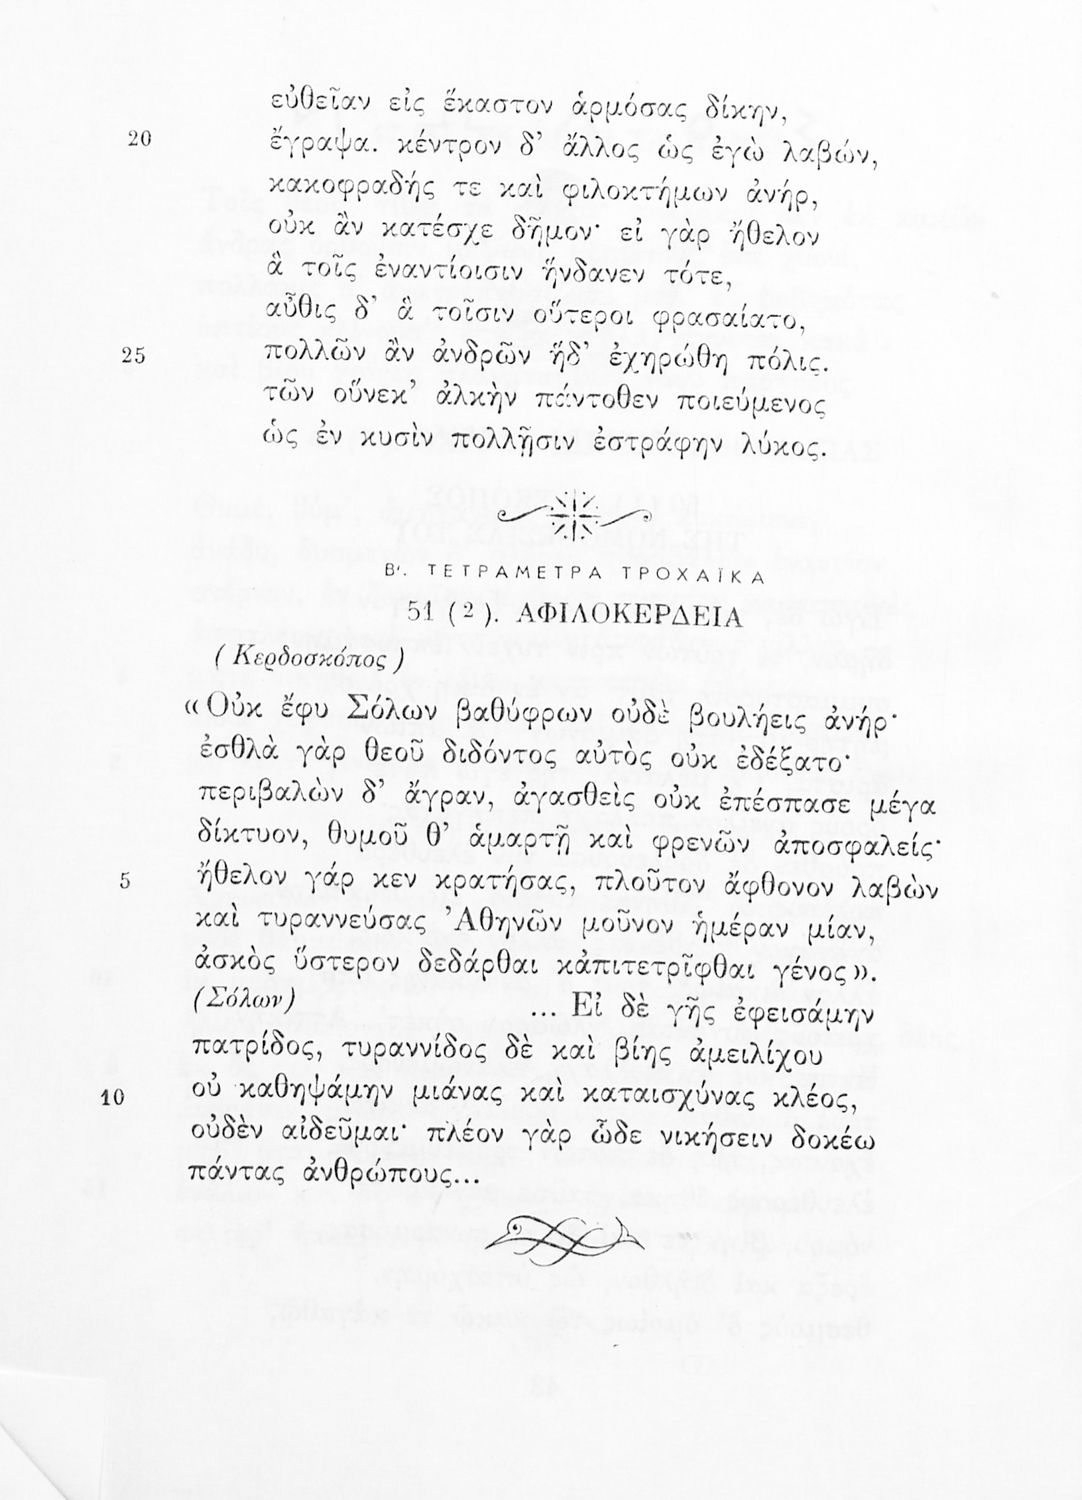 εὐθεῖαν εἰς ἕκαστον ἁρμόσας δίκην,
20 ἔγραψα. κέντρον δ' ἄλλος ὡς ἐγὼ λαβών,
κακοφραδής τε καὶ φιλοκτήμων ἀνήρ,
οὐκ ἂν κατέσχε δῆμον· εἰ γὰρ ἤθελον
ἃ τοῖς ἐναντίοισιν ἥνδανεν τότε,
αὖθις δ' ἃ τοῖσιν οὕτεροι φρασαίατο,
25 πολλῶν ἂν ἀνδρῶν ἥδ' ἐχηρώθη πόλις.
τῶν οὕνεκ' ἀλκὴν πάντοθεν ποιεύμενος
ὡς ἐν κυσὶν πολλῇσιν ἐστράφην λύκος.
Β'. ΤΕΤΡΑΜΕΤΡΑ ΤΡΟΧΑΪΚΑ
51 (2). ΑΦΙΛΟΚΕΡΔΕΙΑ
(Κερδοσκόπος)
«Οὐκ ἔφυ Σόλων βαθύφρων οὐδὲ βουλήεις ἀνήρ·
ἐσθλὰ γὰρ θεοῦ διδόντος αὐτὸς οὐκ ἐδέξατο·
περιβαλὼν δ' ἄγραν, ἀγασθεὶς οὐκ ἐπέσπασε μέγα
δίκτυον, θυμοῦ θ' ἁμαρτῇ καὶ φρενῶν ἀποσφαλείς·
5 ἤθελον γάρ κεν κρατήσας, πλοῦτον ἄφθονον λαβὼν
καὶ τυραννεύσας Ἀθηνῶν μοῦνον ἡμέραν μίαν,
ἀσκὸς ὕστερον δεδάρθαι κἀπιτετρῖφθαι γένος».
(Σόλων) ... Εἰ δὲ γῆς ἐφεισάμην
πατρίδος, τυραννίδος δὲ καὶ βίης ἀμειλίχου
10 οὐ καθηψάμην μιάνας καὶ καταισχύνας κλέος,
οὐδὲν αἰδεῦμαι· πλέον γὰρ ὧδε νικήσειν δοκέω
πάντας ἀνθρώπους...